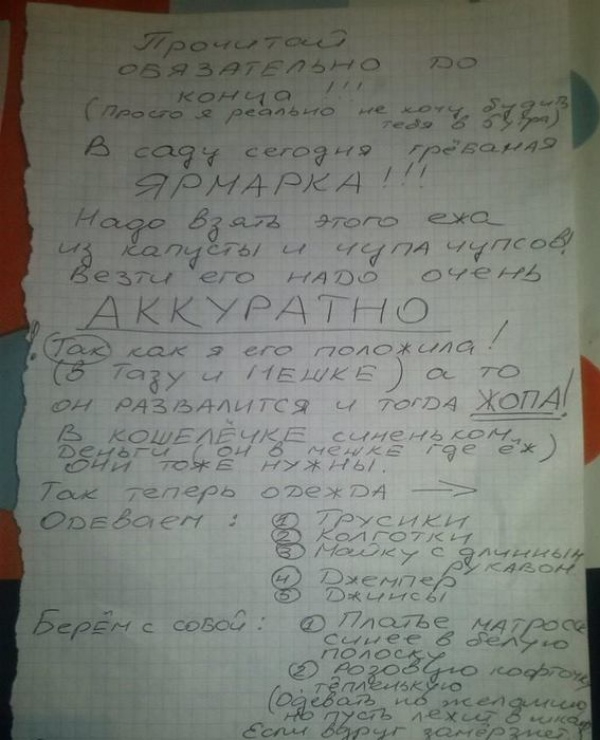 Прочитай
ОБЯЗАТЕЛЬНО ДО
конца !!!
(Просто я реально не хочу будить
тебя в 6 утра)
В саду сегодня грёбаная
ЯРМАРКА!!!
Надо взять этого ежа
из капусты и чупа чупсов!
Везти его НАДО очень
АККУРАТНО
! Так как я его положила!
(в Тазу и МЕШКЕ) а то
он РАЗВАЛИТСЯ и тогда ЖОПА!
В КОШЕЛЁЧКЕ синеньком
Деньги (он в мешке где ёж)
ОНИ ТОЖЕ НУЖНЫ.
Так теперь одежда →
Одеваем : ① Трусики
② Колготки
③ Майку с длинным
рукавом
④ Джемпер
⑤ Джинсы
Берём с собой: ① Платье матроск
синее в белую
полоску
② Розовую кофточку
тёпленькую
(Одевать по желанию
но пусть лежит в шкаф
Если вдруг замёрзнет